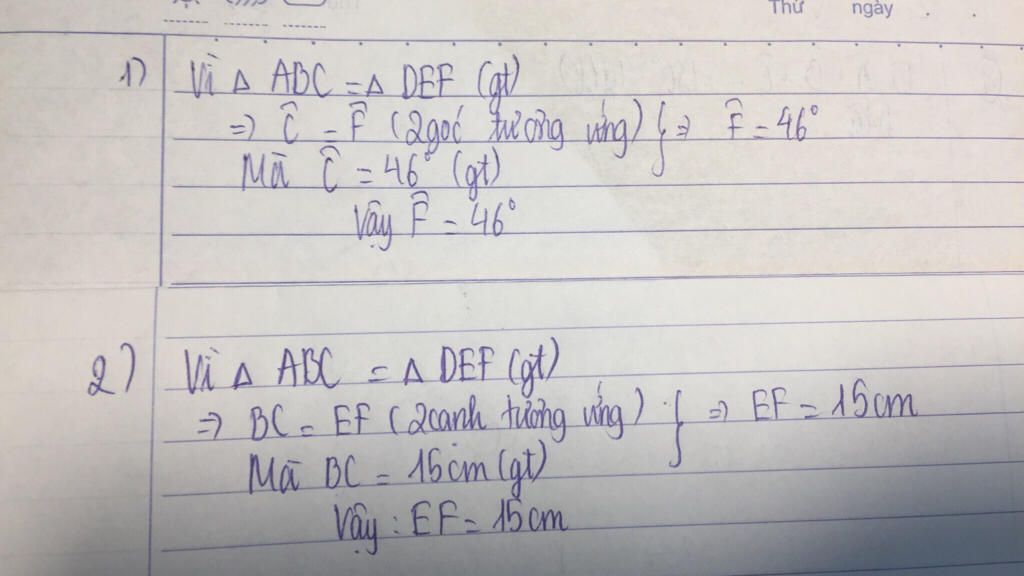 Thứ ngày . .
1) Vì Δ ABC = Δ DEF (gt)
=> Ĉ = F̂ (2 góc tương ứng) } => F̂ = 46°
Mà Ĉ = 46° (gt)
Vậy F̂ = 46°
2) Vì Δ ABC = Δ DEF (gt)
=> BC = EF (2 cạnh tương ứng) } => EF = 15cm
Mà BC = 15cm (gt)
Vậy : EF = 15cm